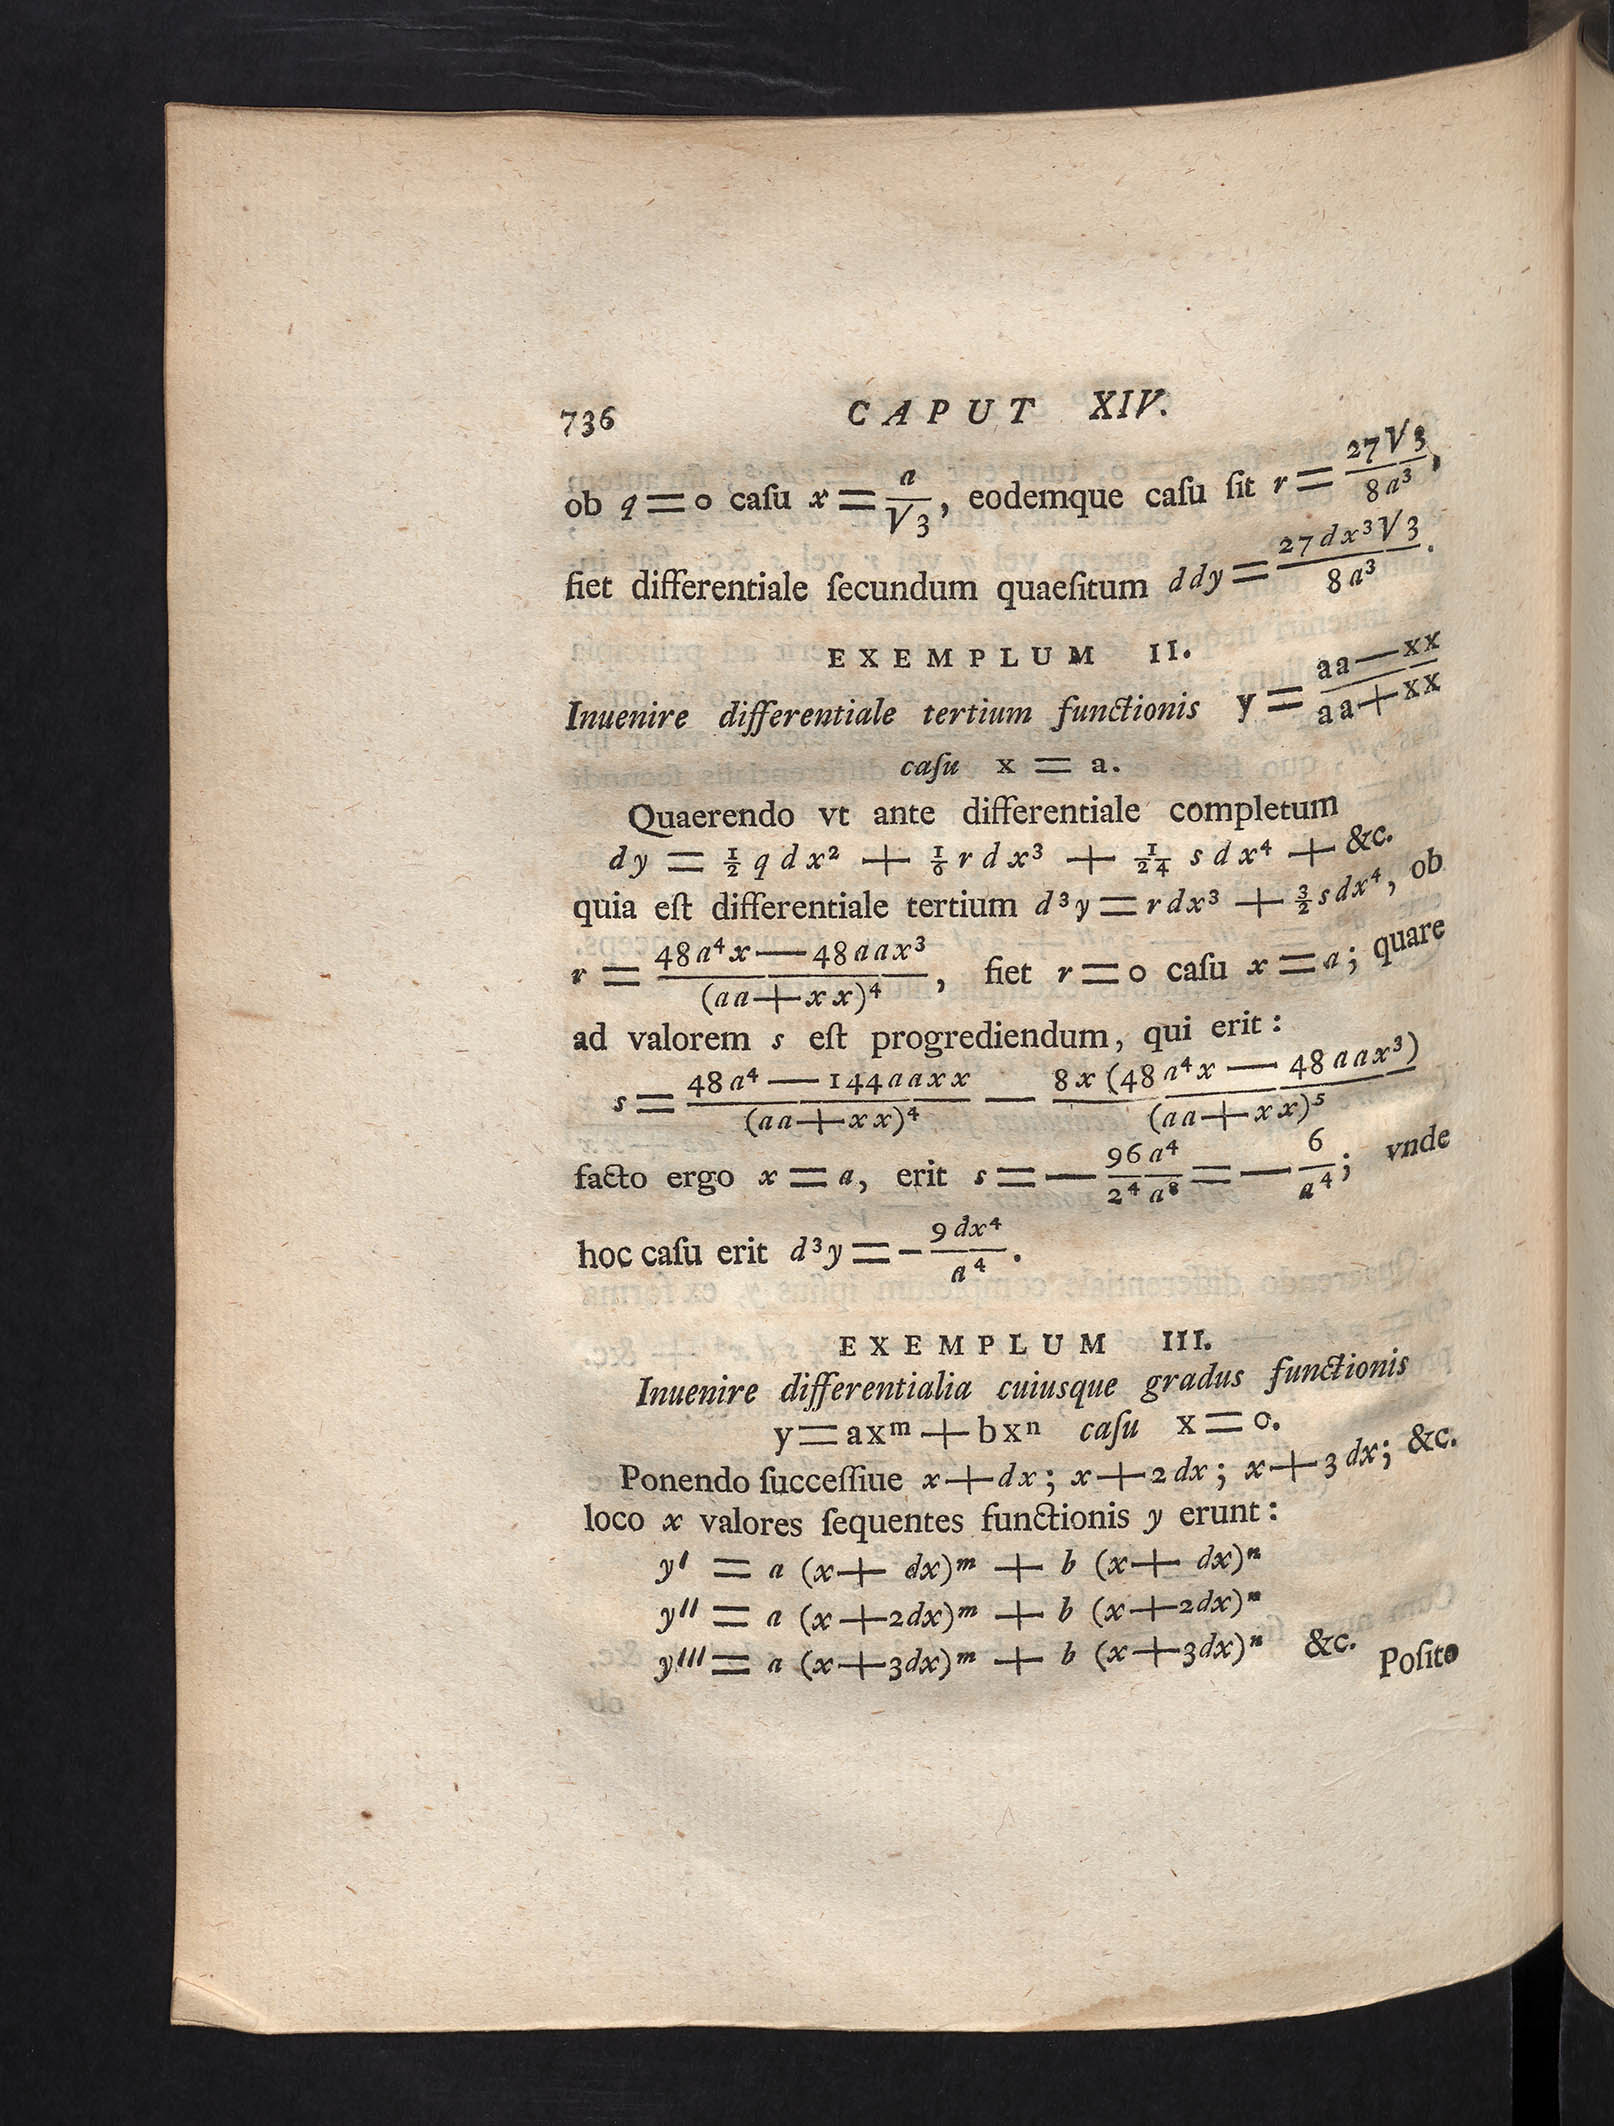 736 CAPUT XIV.
ob q = 0 caſu x = a/√3, eodemque caſu ſit r = 27√3/8a³,
fiet differentiale ſecundum quaeſitum ddy = 27dx³√3/8a³.
EXEMPLUM II.
Inuenire differentiale tertium functionis y = aa—xx/aa+xx
caſu x = a.
Quaerendo vt ante differentiale completum
dy = ½ q dx² + ⅙ r dx³ + 1/24 s dx⁴ + &c.
quia eſt differentiale tertium d³y = rdx³ + 3/2 sdx⁴, ob
r = 48a⁴x — 48aax³/(aa+xx)⁴, fiet r = 0 caſu x = a; quare
ad valorem s eſt progrediendum, qui erit:
s = 48a⁴ — 144aaxx/(aa+xx)⁴ — 8x(48a⁴x — 48aax³)/(aa+xx)⁵
facto ergo x = a, erit s = — 96a⁴/2⁴a⁸ = — 6/a⁴; vnde
hoc caſu erit d³y = - 9dx⁴/a⁴.
EXEMPLUM III.
Inuenire differentialia cuiusque gradus functionis
y = axᵐ + bxⁿ caſu x = 0.
Ponendo ſucceſſiue x+dx; x+2dx; x+3dx; &c.
loco x valores ſequentes functionis y erunt:
yᴵ = a (x+ dx)ᵐ + b (x+ dx)ⁿ
yᴵᴵ = a (x+2dx)ᵐ + b (x+2dx)ⁿ
yᴵᴵᴵ = a (x+3dx)ᵐ + b (x+3dx)ⁿ &c.
Poſito